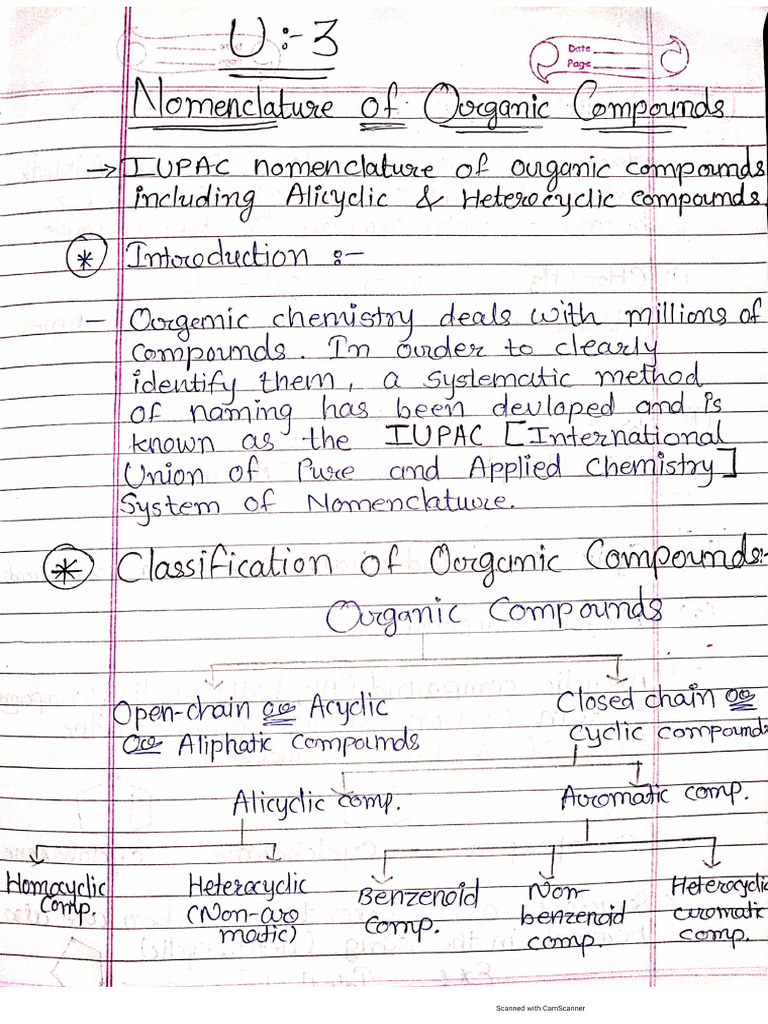 U :- 3
Date
Page
Nomenclature of Organic Compounds
→ IUPAC nomenclature of organic compounds
including Alicyclic & Heterocyclic compounds.
* Introduction :-
- Orgemic chemistry deals with millions of
compounds. In order to clearly
identify them, a systematic method
of naming has been devloped and is
known as the IUPAC [International
Union of Pure and Applied Chemistry]
System of Nomenclature.
* Classification of Organic Compounds:-
Organic Compounds
Open-chain or Acyclic
or Aliphatic Compounds
Closed chain or
cyclic compounds
Alicyclic comp.
Aromatic comp.
Homocyclic
Comp.
Heterocyclic
(Non-aro
matic)
Benzenoid
Comp.
Non-
benzenoid
comp.
Heterocyclic
aromatic
comp.
Scanned with CamScanner